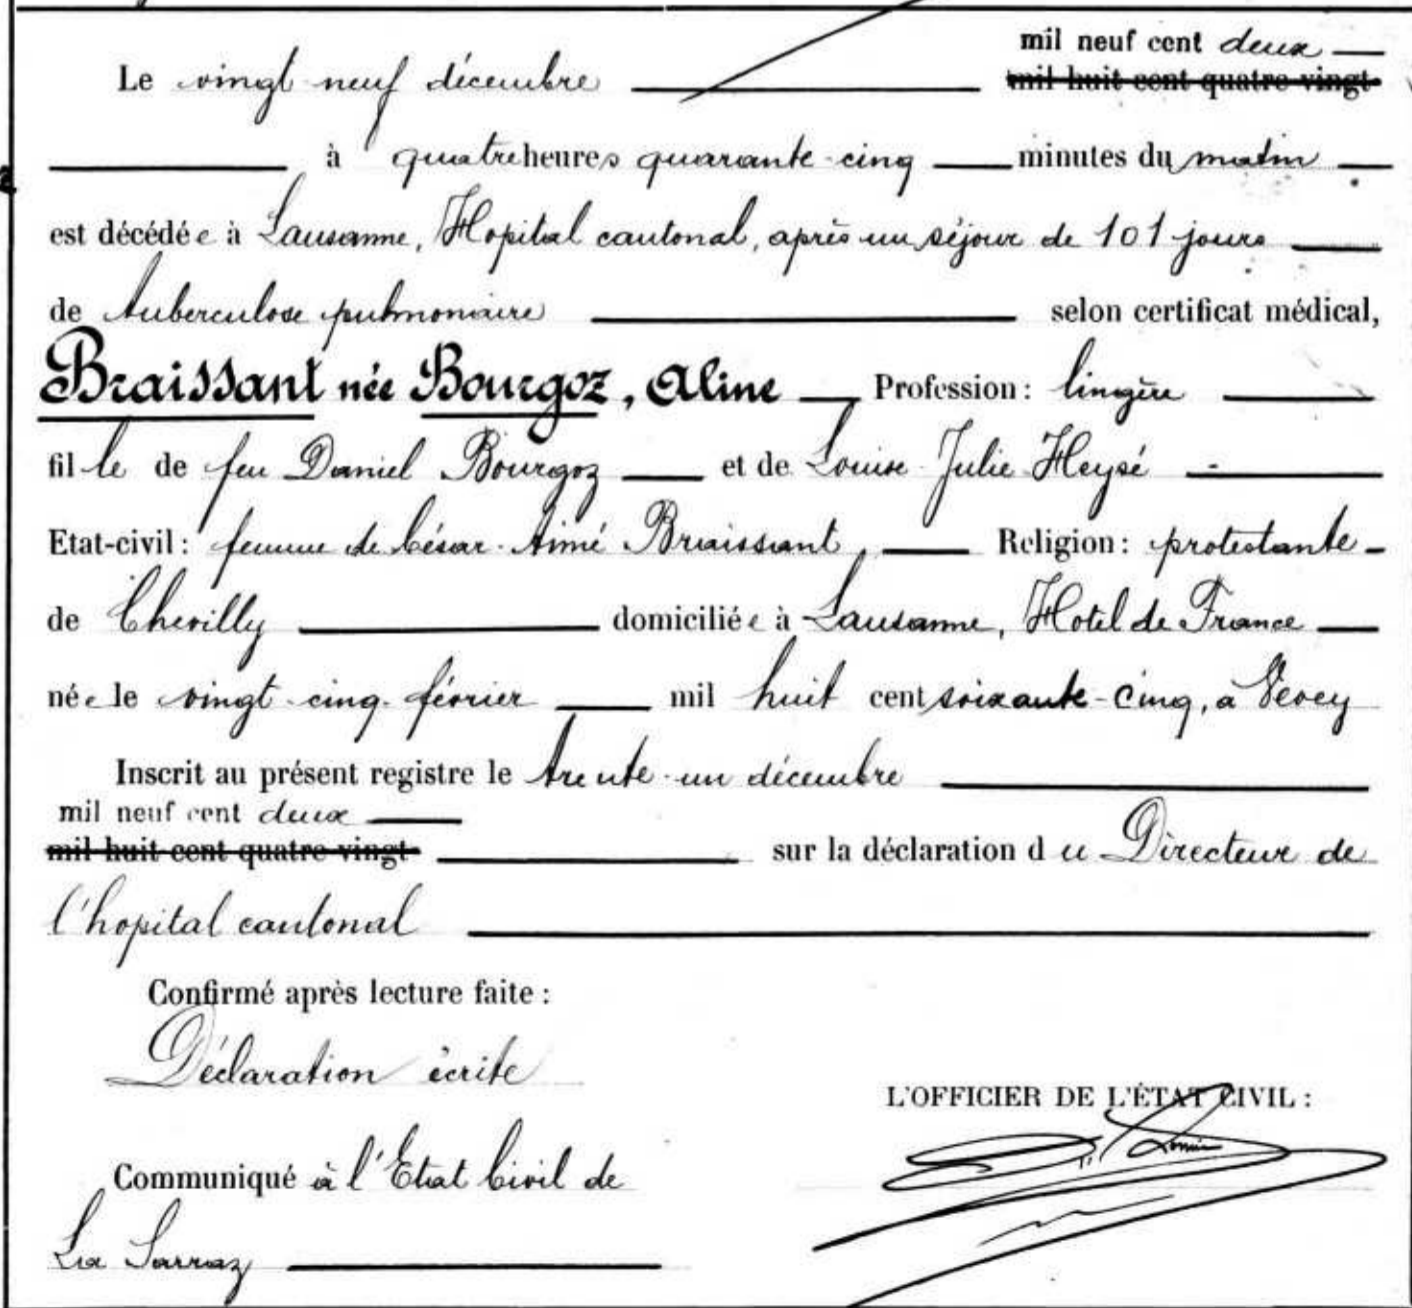 mil neuf cent deux
Le vingt-neuf décembre mil huit cent quatre-vingt
à quatre heures quarante-cinq minutes du matin
est décédée à Lausanne, Hopital cantonal, après un séjour de 101 jours
de tuberculose pulmonaire selon certificat médical,
Braissant née Bourgoz, Aline Profession: lingère
fille de feu Daniel Bourgoz et de Louise-Julie Heysé
Etat-civil: femme de César-Aimé Braissant, Religion: protestante
de Chevilly domiciliée à Lausanne, Hotel de France
née le vingt-cinq février mil huit cent soixante-cinq, à Vevey
Inscrit au présent registre le trente-un décembre
mil neuf cent deux
mil huit cent quatre-vingt sur la déclaration du Directeur de
l'hopital cantonal
Confirmé après lecture faite:
Déclaration écrite
L'OFFICIER DE L'ÉTAT CIVIL:
Communiqué à l'Etat Civil de
La Sarraz